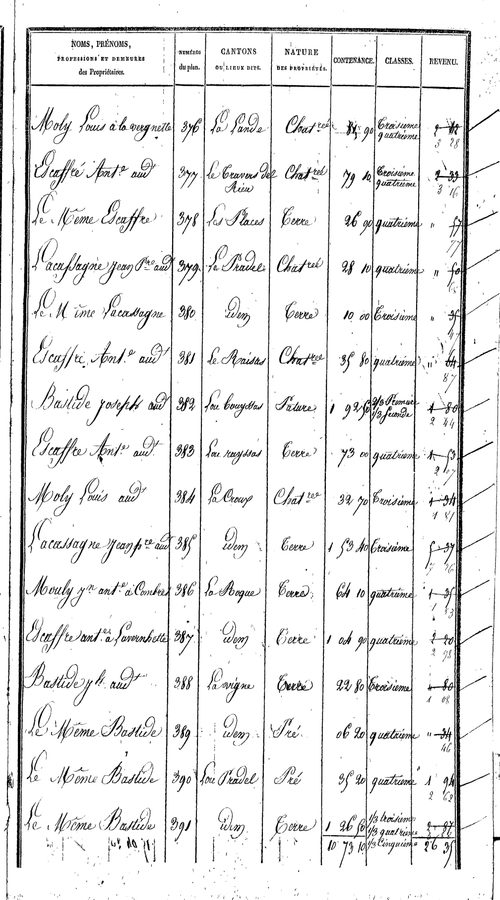 NOMS, PRÉNOMS, PROFESSIONS ET DEMEURES des Propriétaires. | NUMÉROS du plan. | CANTONS OU LIEUX DITS. | NATURE DES PROPRIÉTÉS. | CONTENANCE. | CLASSES. | REVENU.
Moly Louis à la vergnette 376 La Lande Chat.rée 90 Troisième quatrième
3 28
Escaffré Ant.e aud.t 377 Le Travers del Rieu Chat.rée 79 10 Troisième quatrième 2 33
3 16
Le Même Escaffre 378 Les Places Terre 26 90 quatrième " 57
77
Lacassagne Jean Pre aud.t 379 Le Pradel Chat.rée 28 10 quatrième " 50
Le Même Lacassagne 380 idem Terre 10 00 Troisième " 35
Escaffré Ant.e aud.t 381 Le Raisas Chat.rée 35 80 quatrième " 64
87
Bastide Joseph aud.t 382 Lou Couyssas Pature 1 92 50 2/3 Premiere 1/3 Seconde 1 80
2 44
Escaffre Ant.e aud.t 383 Lou rayssas Terre 73 00 quatrième 1 53
2 07
Moly Louis aud.t 384 La Croux Chat.rée 32 70 Troisième 1 34
1 81
Lacassagne Jean pre aud.t 385 idem Terre 1 53 40 Troisième 5 37
7 26
Mouly Jn ant.e à Combres 386 La Roque Terre 64 10 quatrième 1 35
1 83
Escaffre ant.e à Lavernhette 387 idem Terre 1 04 90 quatrième 2 20
2 98
Bastide Jh aud.t 388 La vigne Terre 22 80 Troisième " 80
1 08
Le Même Bastide 389 idem Pré 06 20 quatrième " 34
46
Le Même Bastide 390 Lou Pradel Pré 35 20 quatrième 1 94
2 62
Le Même Bastide 391 idem Terre 1 26 50 1/3 troisième 1/3 quatrième 1/3 Cinquième
10 73 10 26 35